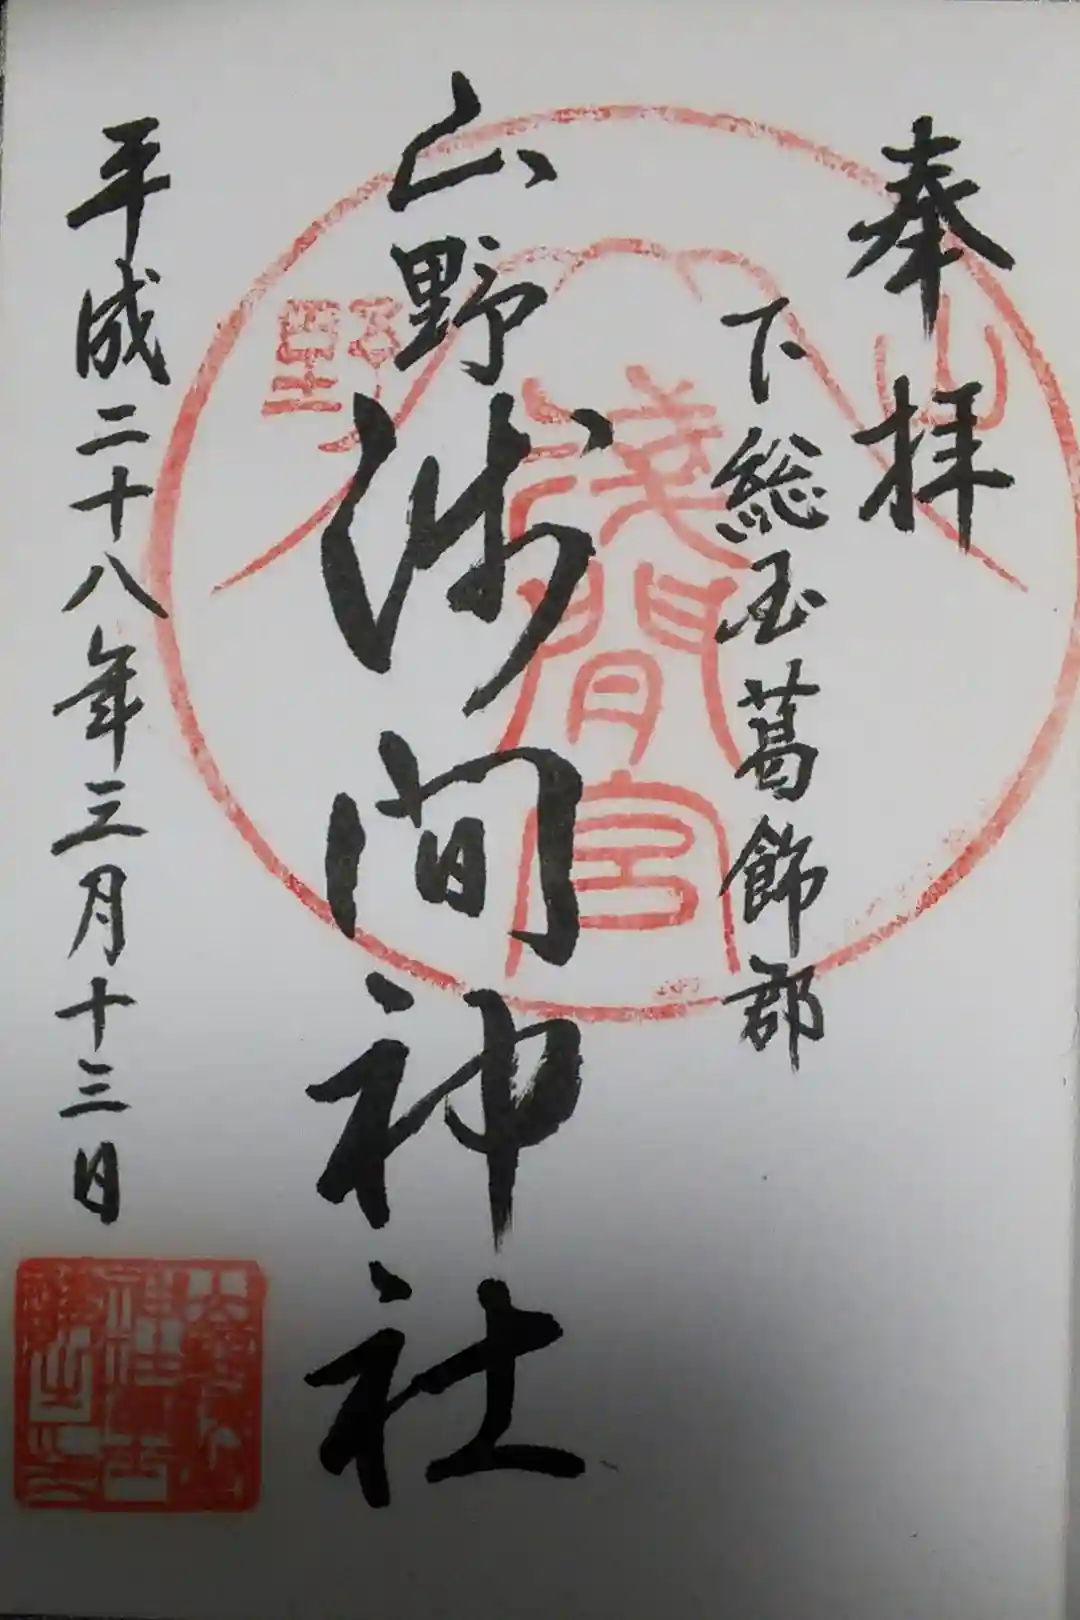 奉拝
下総国葛飾郡
山野浅間神社
平成二十八年三月十三日
山野
淺間宮